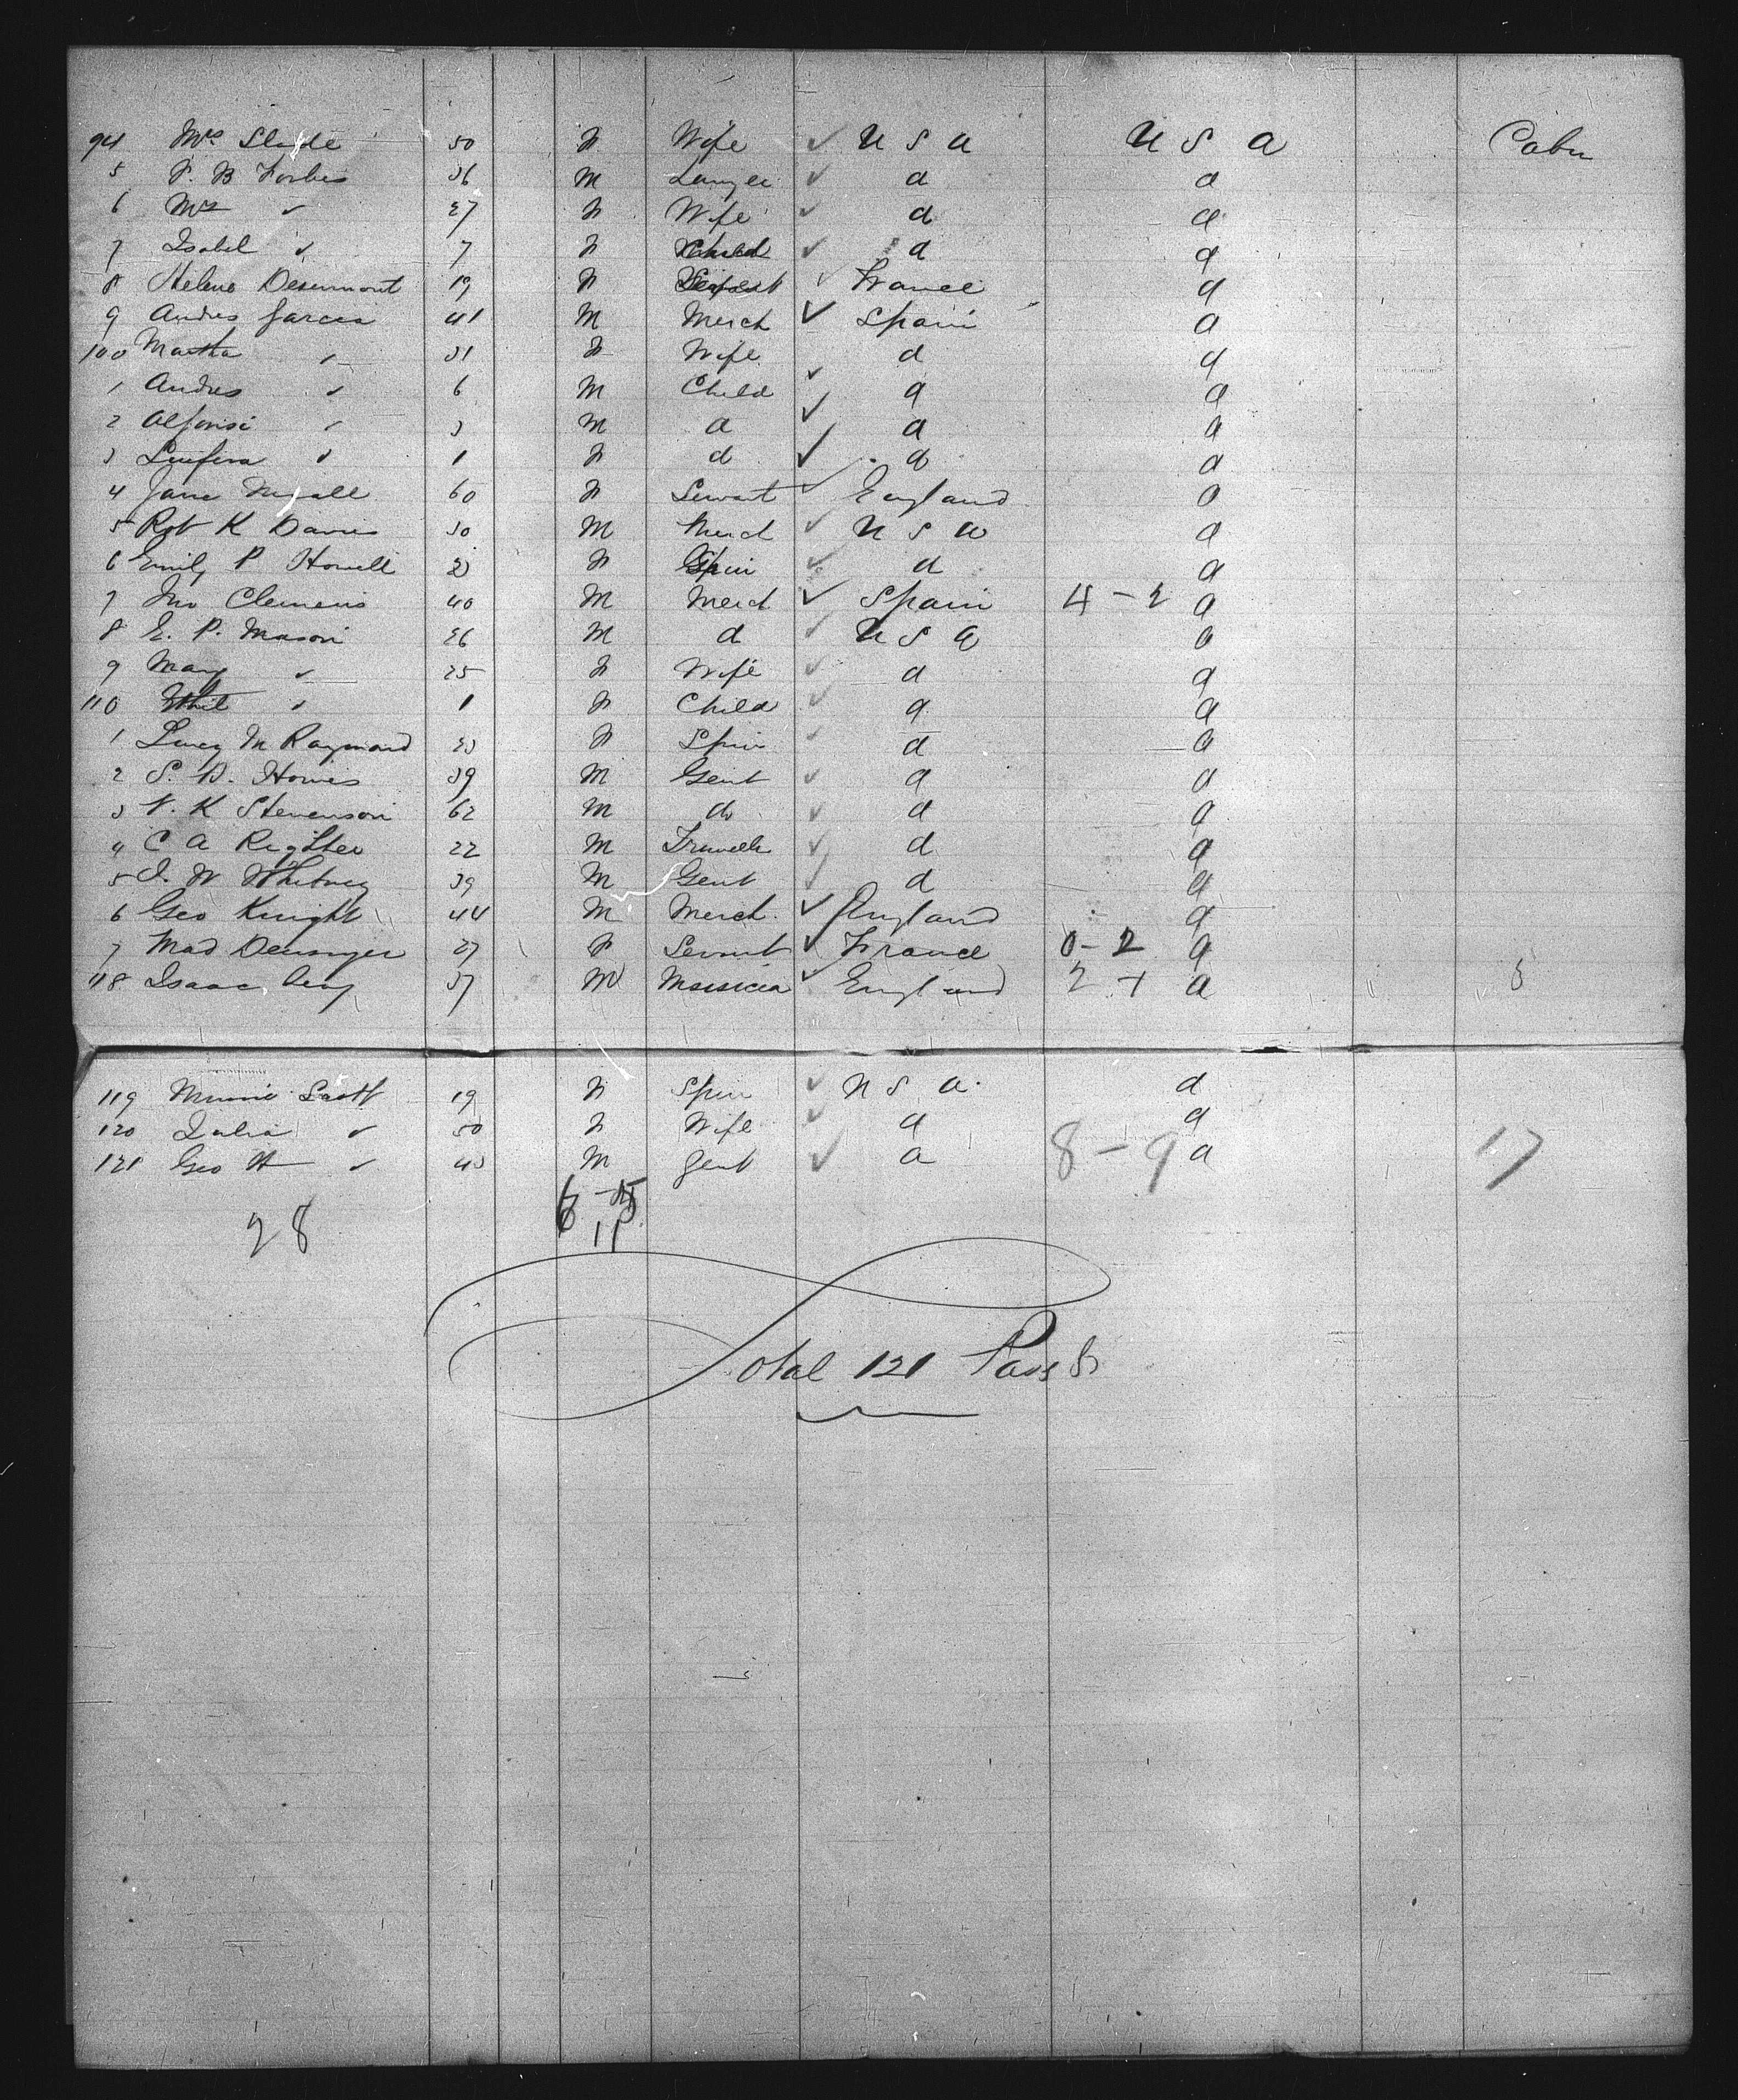 94 Mrs Slade 50 F Wife ✓ U S A U S A Cabn
5 F. B Forbes 36 M Lawyer ✓ d d
6 Mrs " 27 F Wife ✓ d d
7 Isabel " 7 F Child ✓ d d
8 Helene Desumont 19 F ✓ France d
9 Andres Garcia 41 M Merch ✓ Spain d
100 Martha " 31 F Wife d d
1 Andres " 6 M Child ✓ d d
2 Alfonso " 3 M d ✓ d d
3 " 1 F d ✓ d d
4 Jane 60 F Servant ✓ England d
5 Robt K Davies 30 M Merch ✓ U S A d
6 Emily P Howell F Spin ✓ d d
7 Jno Clemens 40 M Merch ✓ Spain 4 - 2 d
8 E. P. Mason 26 M d ✓ U S A d
9 Mary " 25 F Wife ✓ d d
110 " 1 F Child ✓ d d
1 Lucy M Raymond 23 F Spin ✓ d d
2 S. D. Howes 39 M Gent ✓ d d
3 V. K Stevenson 62 M do ✓ d d
4 C A Righter 22 M Travellr ✓ d d
5 J. W Whitney 39 M Gent ✓ d d
6 Geo Knight 44 M Merch. ✓ England d
7 Mad 37 F Servant ✓ France 0 - 2 d
118 Isaac Levy 37 M ✓ England 2 + d 8
119 Minnie Scott 19 F Spin ✓ U S A. d
120 Julia " 50 F Wife ✓ d d
121 Geo W " 43 M Gent ✓ d 8 - 9 d 17
28 6 - 5
11
Total 121 Passgs